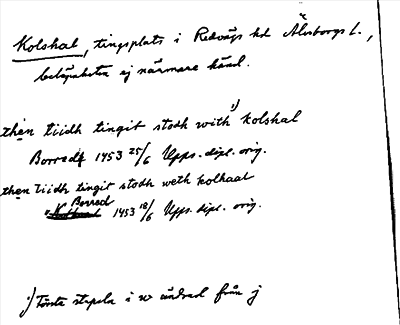 Kolshal, tingsplats i Redvägs hd Älvsborgs l.,
belägenheten ej närmare känd.
then tiidh tingit stodh with 1) kolshal
Borred 1453 25/6 Upps. dipl. orig.
then tiidh tingit stodh weth kolhaal
Borred
1453 18/6 Upps. dipl. orig.
1) Första stapeln i w ändrad från j